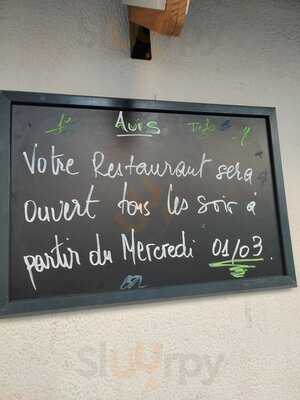 Avis
Votre Restaurant sera
ouvert tous les soir à
partir du Mercredi 01/03.
sluurpy